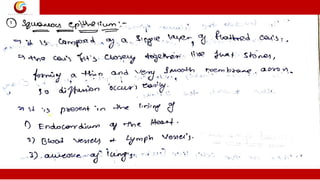 ① Squamous epithelium:-
→ it is composed of a single layer of flattened cells.
→ the cells fit's closely together like flat stones,
forming a thin and very smooth membrane
so diffusion occurs easily.
→ it is present in the lining of
1) Endocardium of the Heart.
2) Blood vessels & lymph vessel's.
3) alveole of lungs.